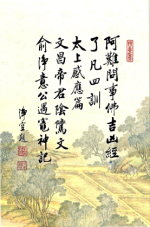 阿難問事佛吉凶經
了凡四訓
太上感應篇
文昌帝君陰騭文
俞淨意公遇竈神記
淨空題